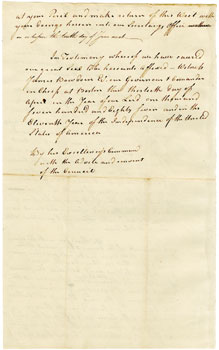 at your Peril and make return of this Writ with
your doings therein into our Secretarys Office
on or before the tenth day of June next.
In Testimony whereof we have caused
our great Seal to be hereunto affixed — Witness
James Bowdoin Esqr our Governour & Commander
in Chief at Boston this thirtieth Day of
April in the Year of our Lord one thousand
seven hundred and Eighty seven and in the
Eleventh Year of the Independence of the United
States of America
By his Excellency's Command
with the Advice and consent
of the Council